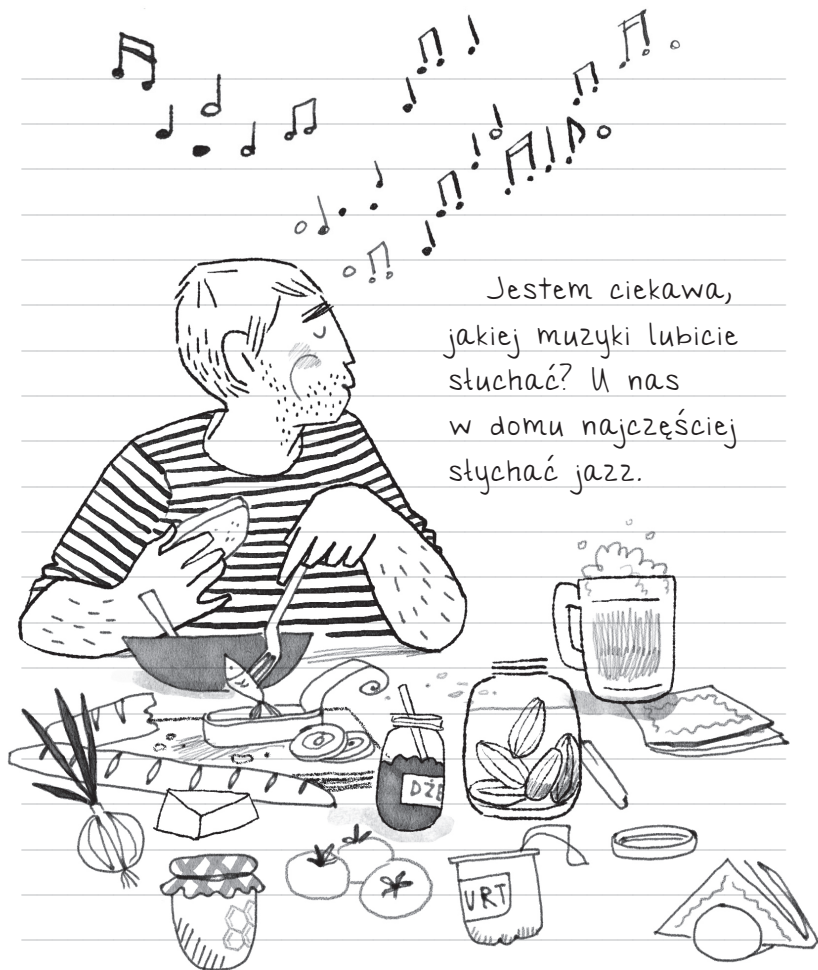 Jestem ciekawa,
jakiej muzyki lubicie
słuchać? U nas
w domu najczęściej
słychać jazz.
DŻE
URT